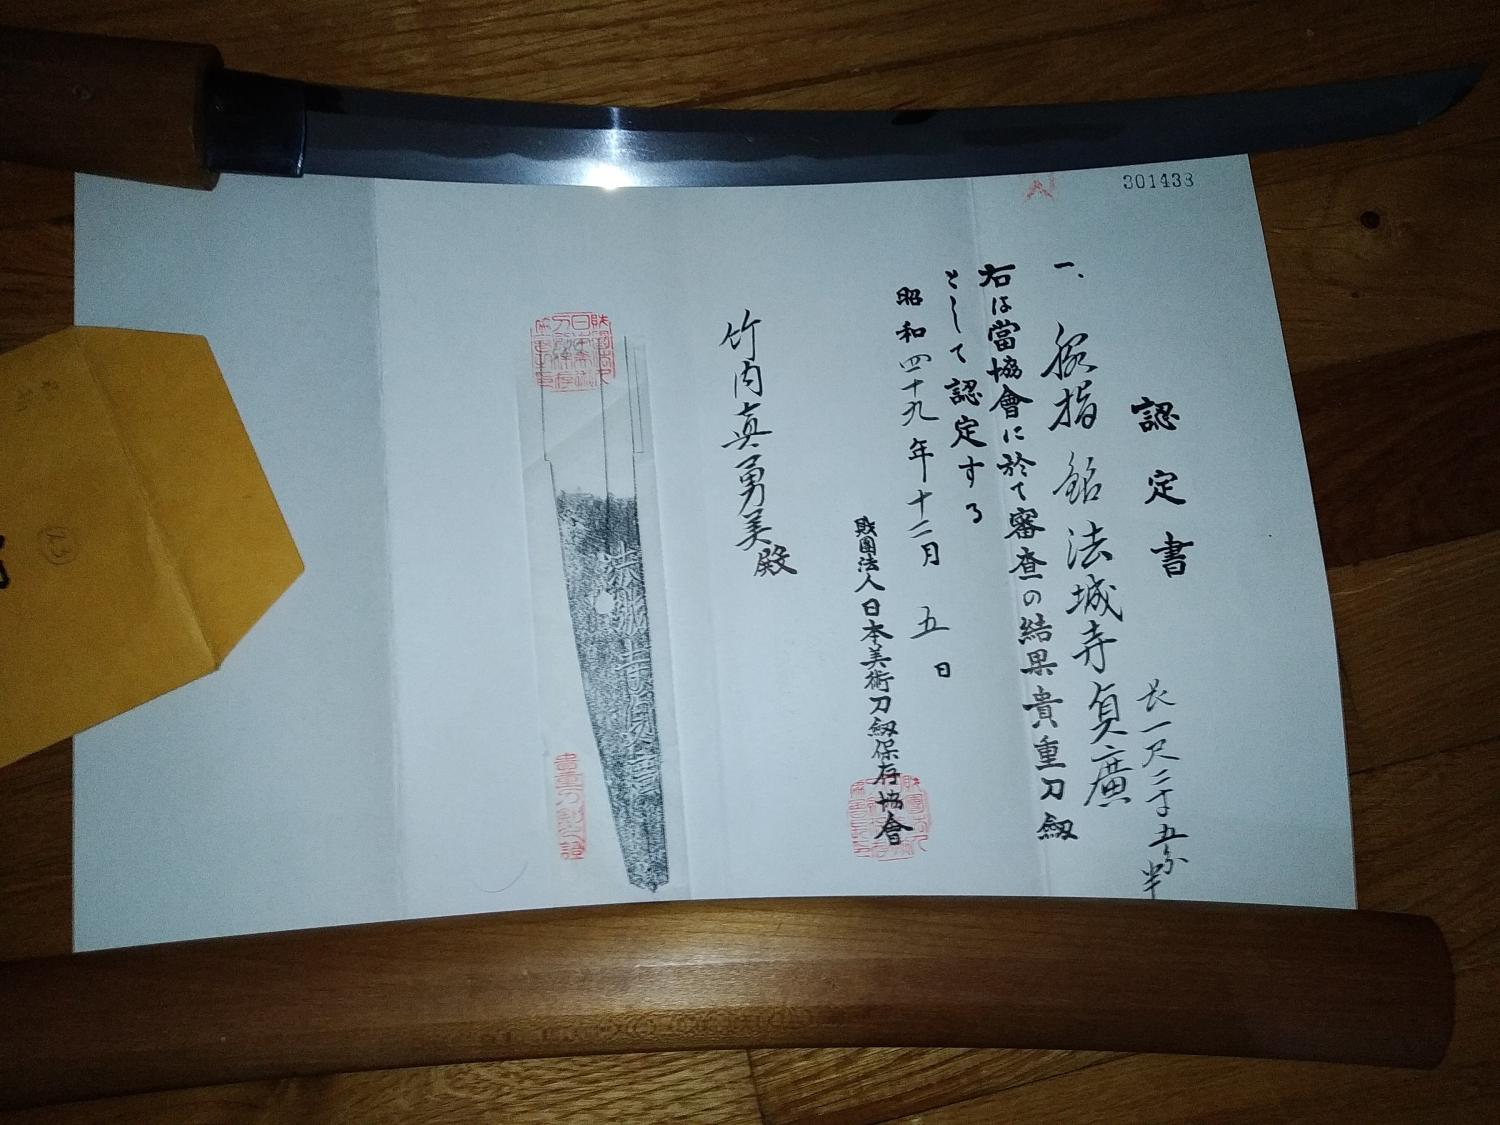 301433
認定書
一、
脇指 銘 法城寺貞廣
長一尺二寸五分半
右は當協會に於て審査の結果貴重刀劔
として認定する
昭和四十九年十二月 五 日
財團法人日本美術刀劔保存協會
竹内真勇美殿
貴重刀劔之證